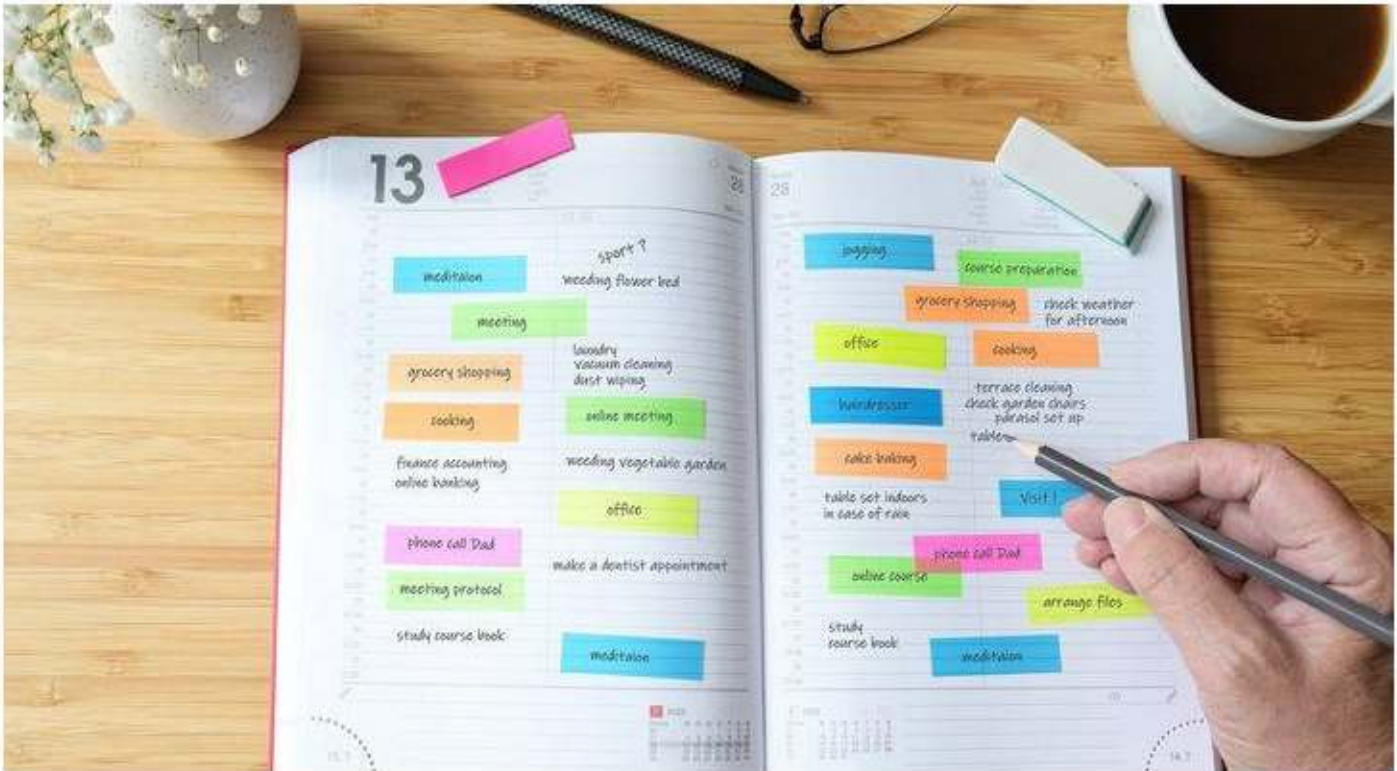 13
28
28
sport ?
meditaion
weeding flower bed
meeting
laundry
vacuum cleaning
dust wiping
grocery shopping
online meeting
cooking
finance accounting
online banking
weeding vegetable garden
office
phone call Dad
make a dentist appointment
meeting protocol
study course book
meditaion
jogging
course preparation
grocery shopping
check weather
for afternoon
office
cooking
terrace cleaning
check garden chairs
parasol set up
table
hairdresser
cake baking
table set indoors
in case of rain
Visit !
phone call Dad
online course
arrange files
study
course book
meditaion